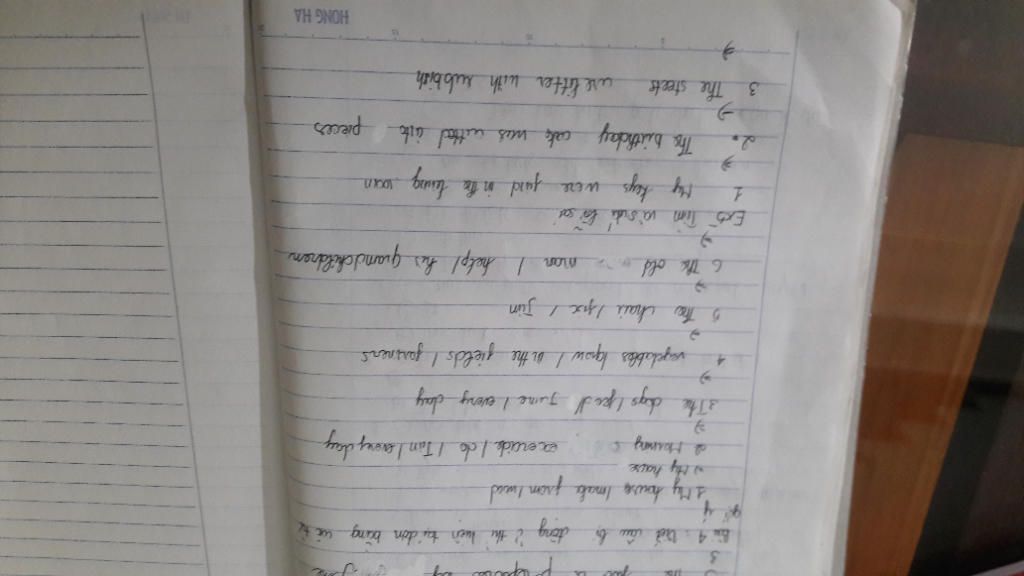 The is prepared by
3
Bài 4: Viết câu bị động ở thì hiện tại đơn bằng
gợi ý
1 My house / made from / wood
→ My house
2 Morning exercide / do / Tom / every day
→
3. The dogs / feed / June / every day
→
4 vegetables / grow / in the fields / farmers
→
5 The chair / fix / Jim
→
6 The old man / help / his grandchildren
→
Ex5 Tìm và sửa lỗi sai
1 My keys were fund in the living room
→
2. The birthday cake was cutted into pieces
→
3 The streets are litter with rubbish
→
HONG HA